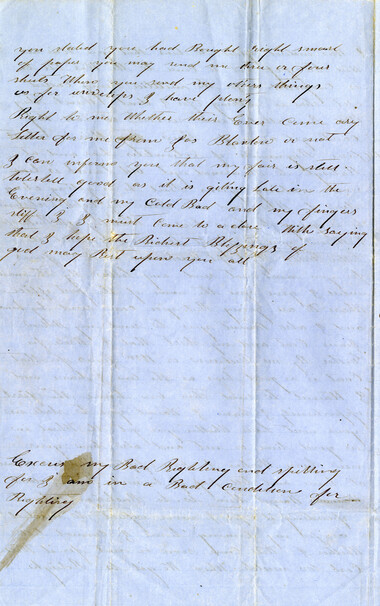 you stated you had Bought right smart
of paper you may send me three or four
sheets When you send my other things
as for envelops I have plenty
Right to me Whether their Ever Came any
Letter for me from Jas Blanton or not
I can inform you that my fair is still
tolerbel good as it is giting Late in the
Evening and my Cold Bad and my fingers
stiff I must Come to a close With saying
that I hope the Richest Blessings of
god may Rest upon you all
Excuse my Bad Righting and spelling
for I am in a Bad Condition for
Righting